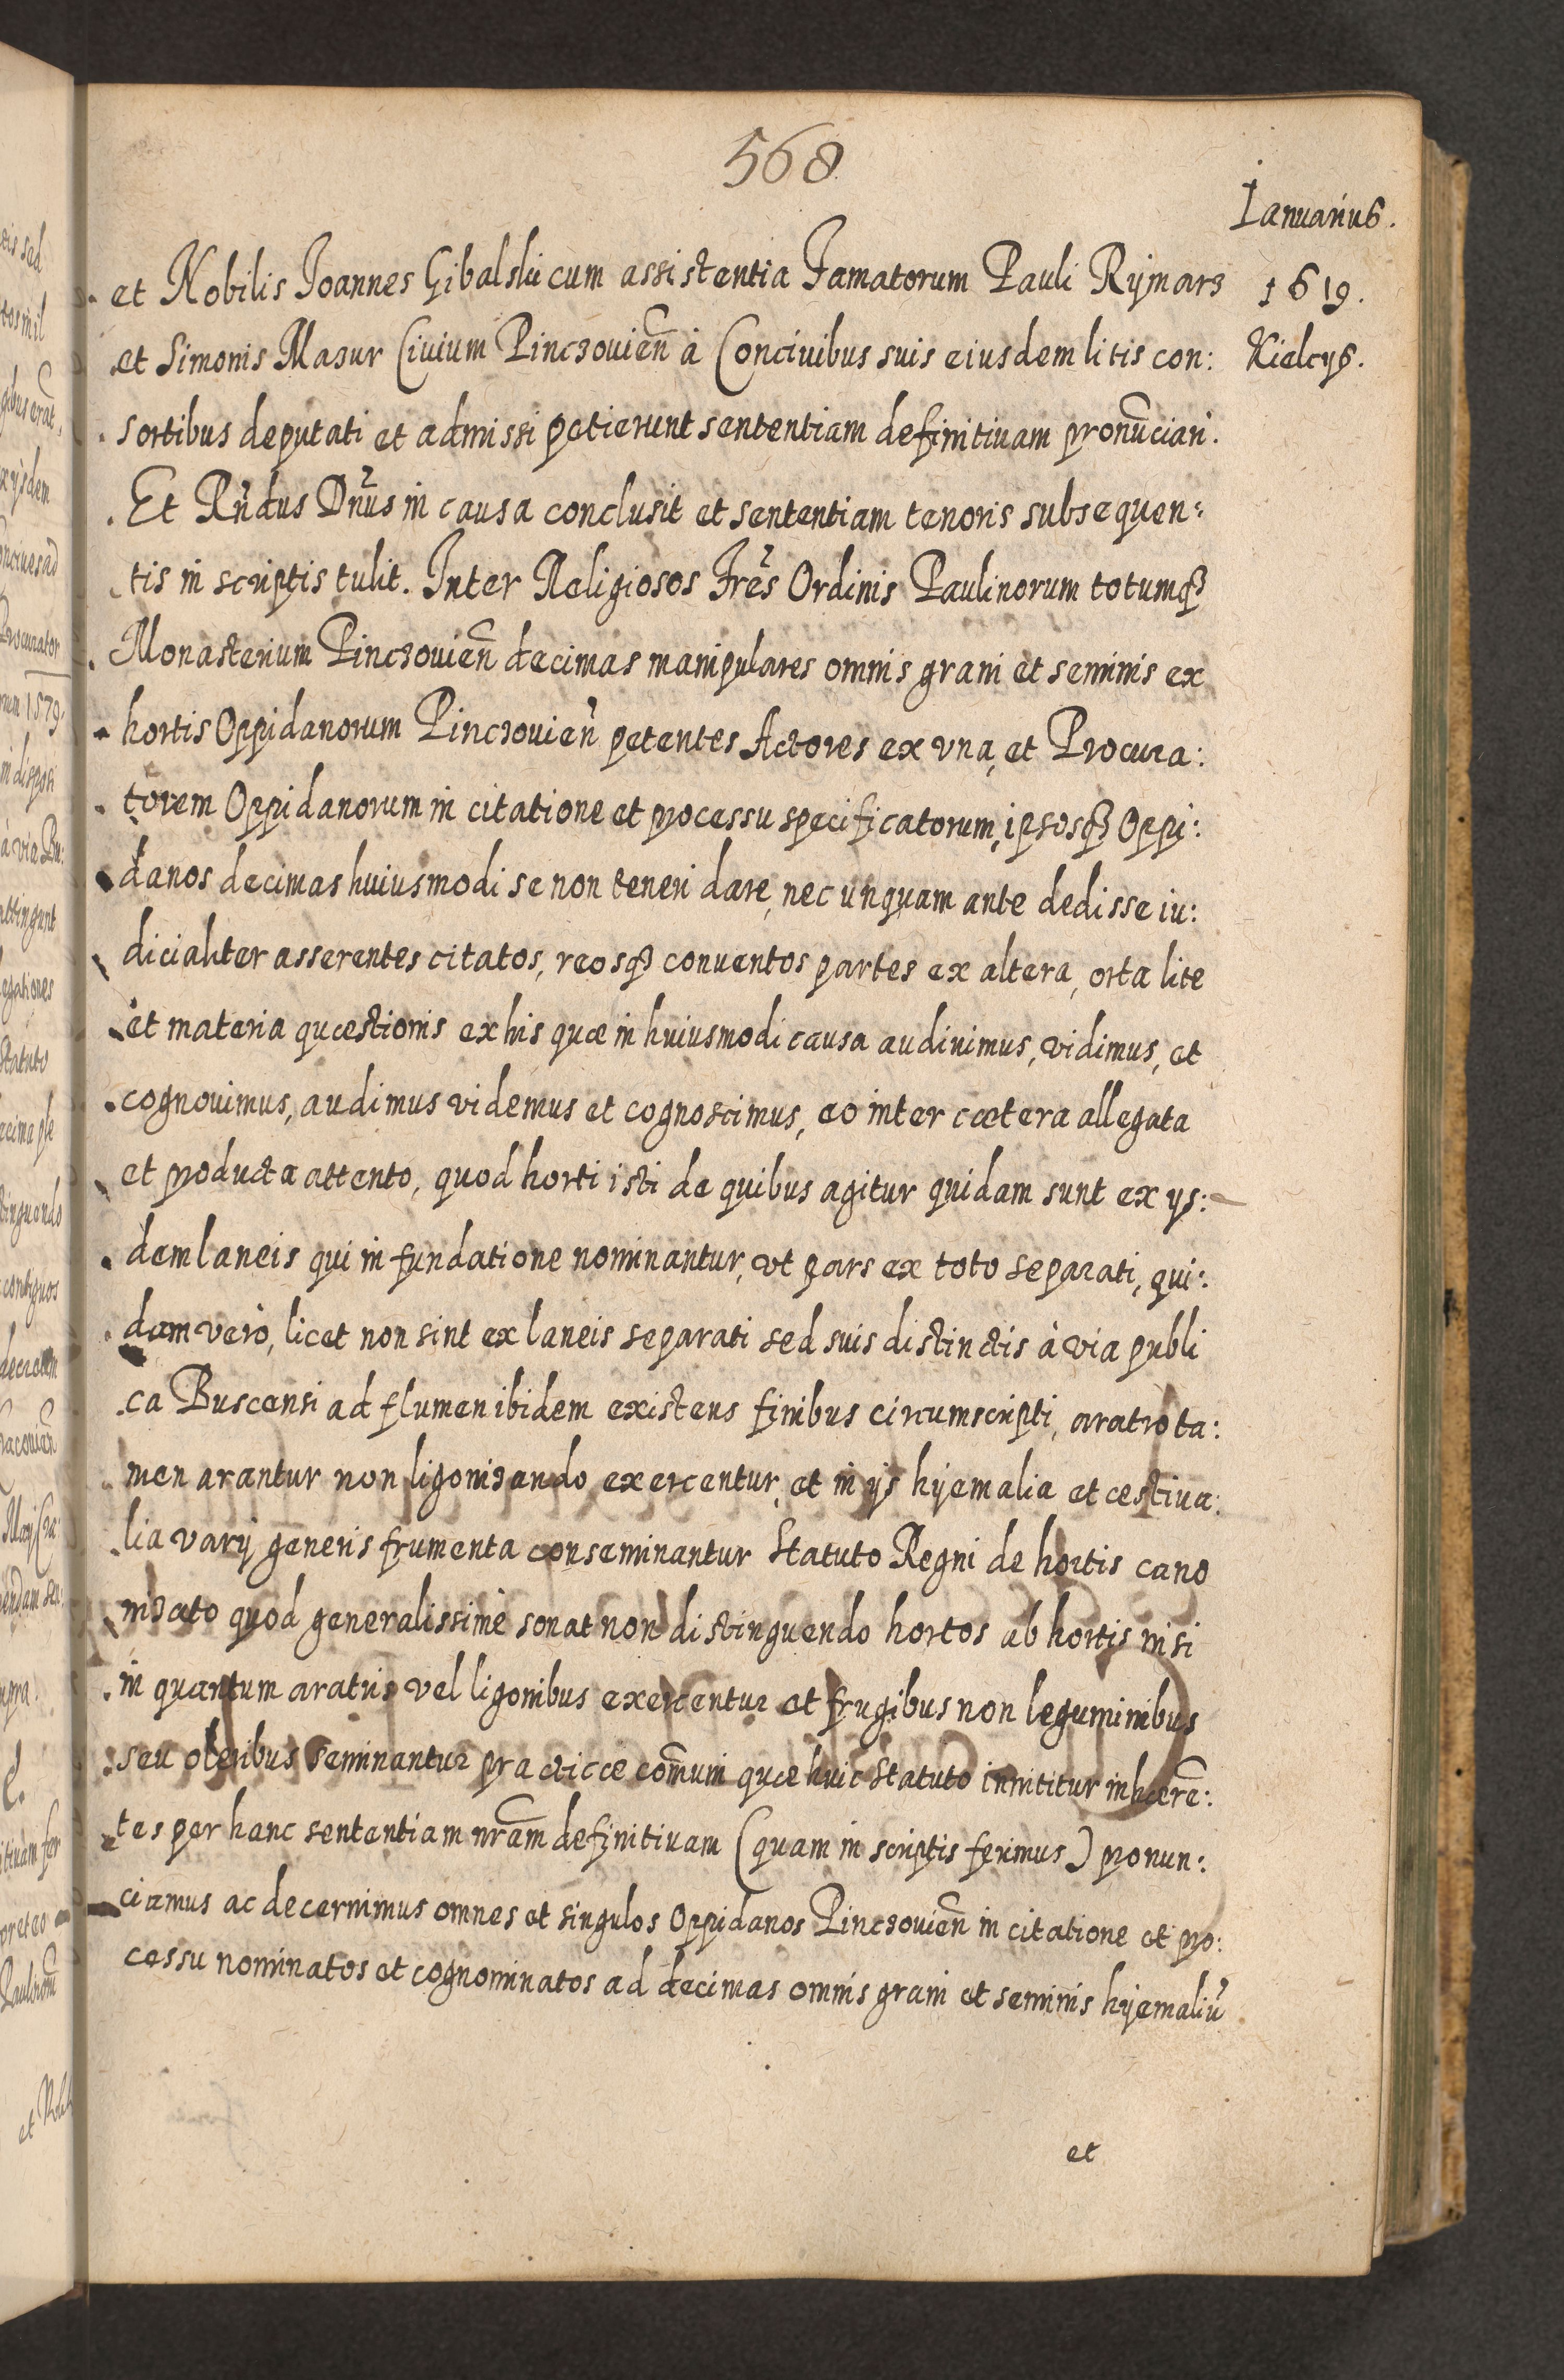 568
Ianuarius.
1619.
Kielcys.
et Nobilis Joannes Gibalskii cum assistentia Famatorum Pauli Rymarz
et Simonis Mazur Ciuium Pinczouien̄ à Conciuibus suis eiusdem litis con:
sortibus deputati et admissi petierunt sententiam definitiuam pronūciari.
Et Rn̄dus Dn̄us in causa conclusit et sententiam tenoris subsequen:
tis in scriptis tulit. Inter Religiosos Frēs Ordinis Paulinorum totumqȝ
Monasterium Pinczouien̄ decimas manipulares omnis grani et seminis ex
hortis Oppidanorum Pinczouien̄ petentes Actores ex vna, et Procura:
torem Oppidanorum in citatione et processu specificatorum, ipsosqȝ Oppi:
danos decimas huiusmodi se non teneri dare, nec unquam ante dedisse iu:
dicialiter asserentes citatos, reosqȝ conuentos partes ex altera, orta lite
et materia quæstionis ex his quæ in huiusmodi causa audiuimus, vidimus, et
cognouimus, audimus videmus et cognoscimus, eo inter cætera allegata
et producta attento, quod horti isti de quibus agitur quidam sunt ex ys:
dem laneis qui in fundatione nominantur, vt pars ex toto separati, qui:
dam verò, licet non sint ex laneis separati sed suis distinctis à via publi
ca Buscensi ad flumen ibidem existens finibus circumscripti, aratro ta:
men arantur non ligonizando exercentur, et in ijs hyemalia et æstiua:
lia varij generis frumenta conseminantur Statuto Regni de hortis cano
nizato quod generalissimè sonat non distinguendo hortos ab hortis nisi
in quantum aratris vel ligonibus exercentur et frugibus non leguminibus
seu oleribus seminantur practicæ com̄uni quæ huic Statuto innititur inhærē:
tes per hanc sententiam nr̄am definitiuam (quam in scriptis ferimus) pronun:
ciamus ac decernimus omnes et singulos Oppidanos Pinczouien̄ in citatione et pro:
cessu nominatos et cognominatos ad decimas omnis grani et seminis hyemaliū
et